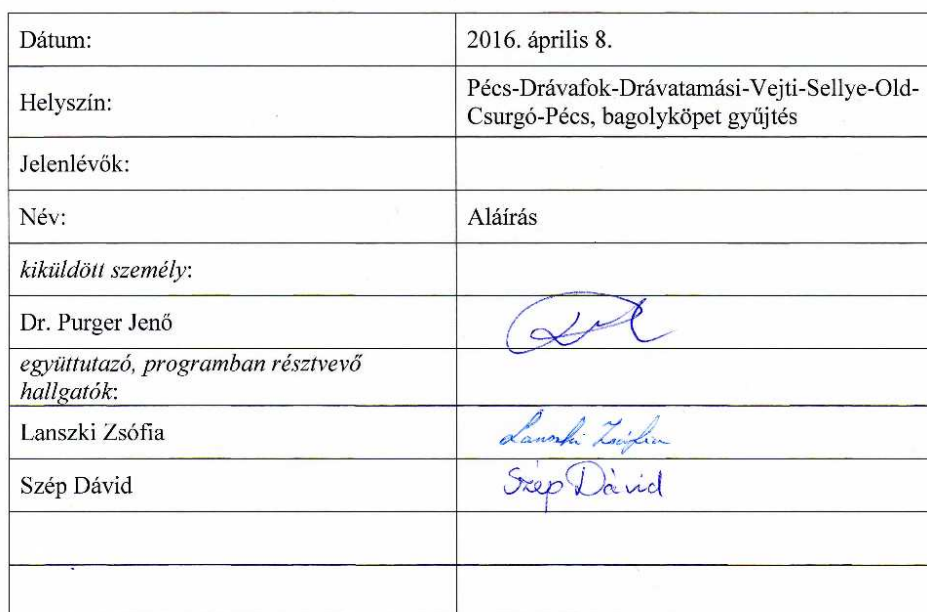 Dátum: 2016. április 8.
Helyszín: Pécs-Drávafok-Drávatamási-Vejti-Sellye-Old-
Csurgó-Pécs, bagolyköpet gyűjtés
Jelenlévők:
Név: Aláírás
kiküldött személy:
Dr. Purger Jenő
együttutazó, programban résztvevő
hallgatók:
Lanszki Zsófia Lanszki Zsófia
Szép Dávid Szép Dávid